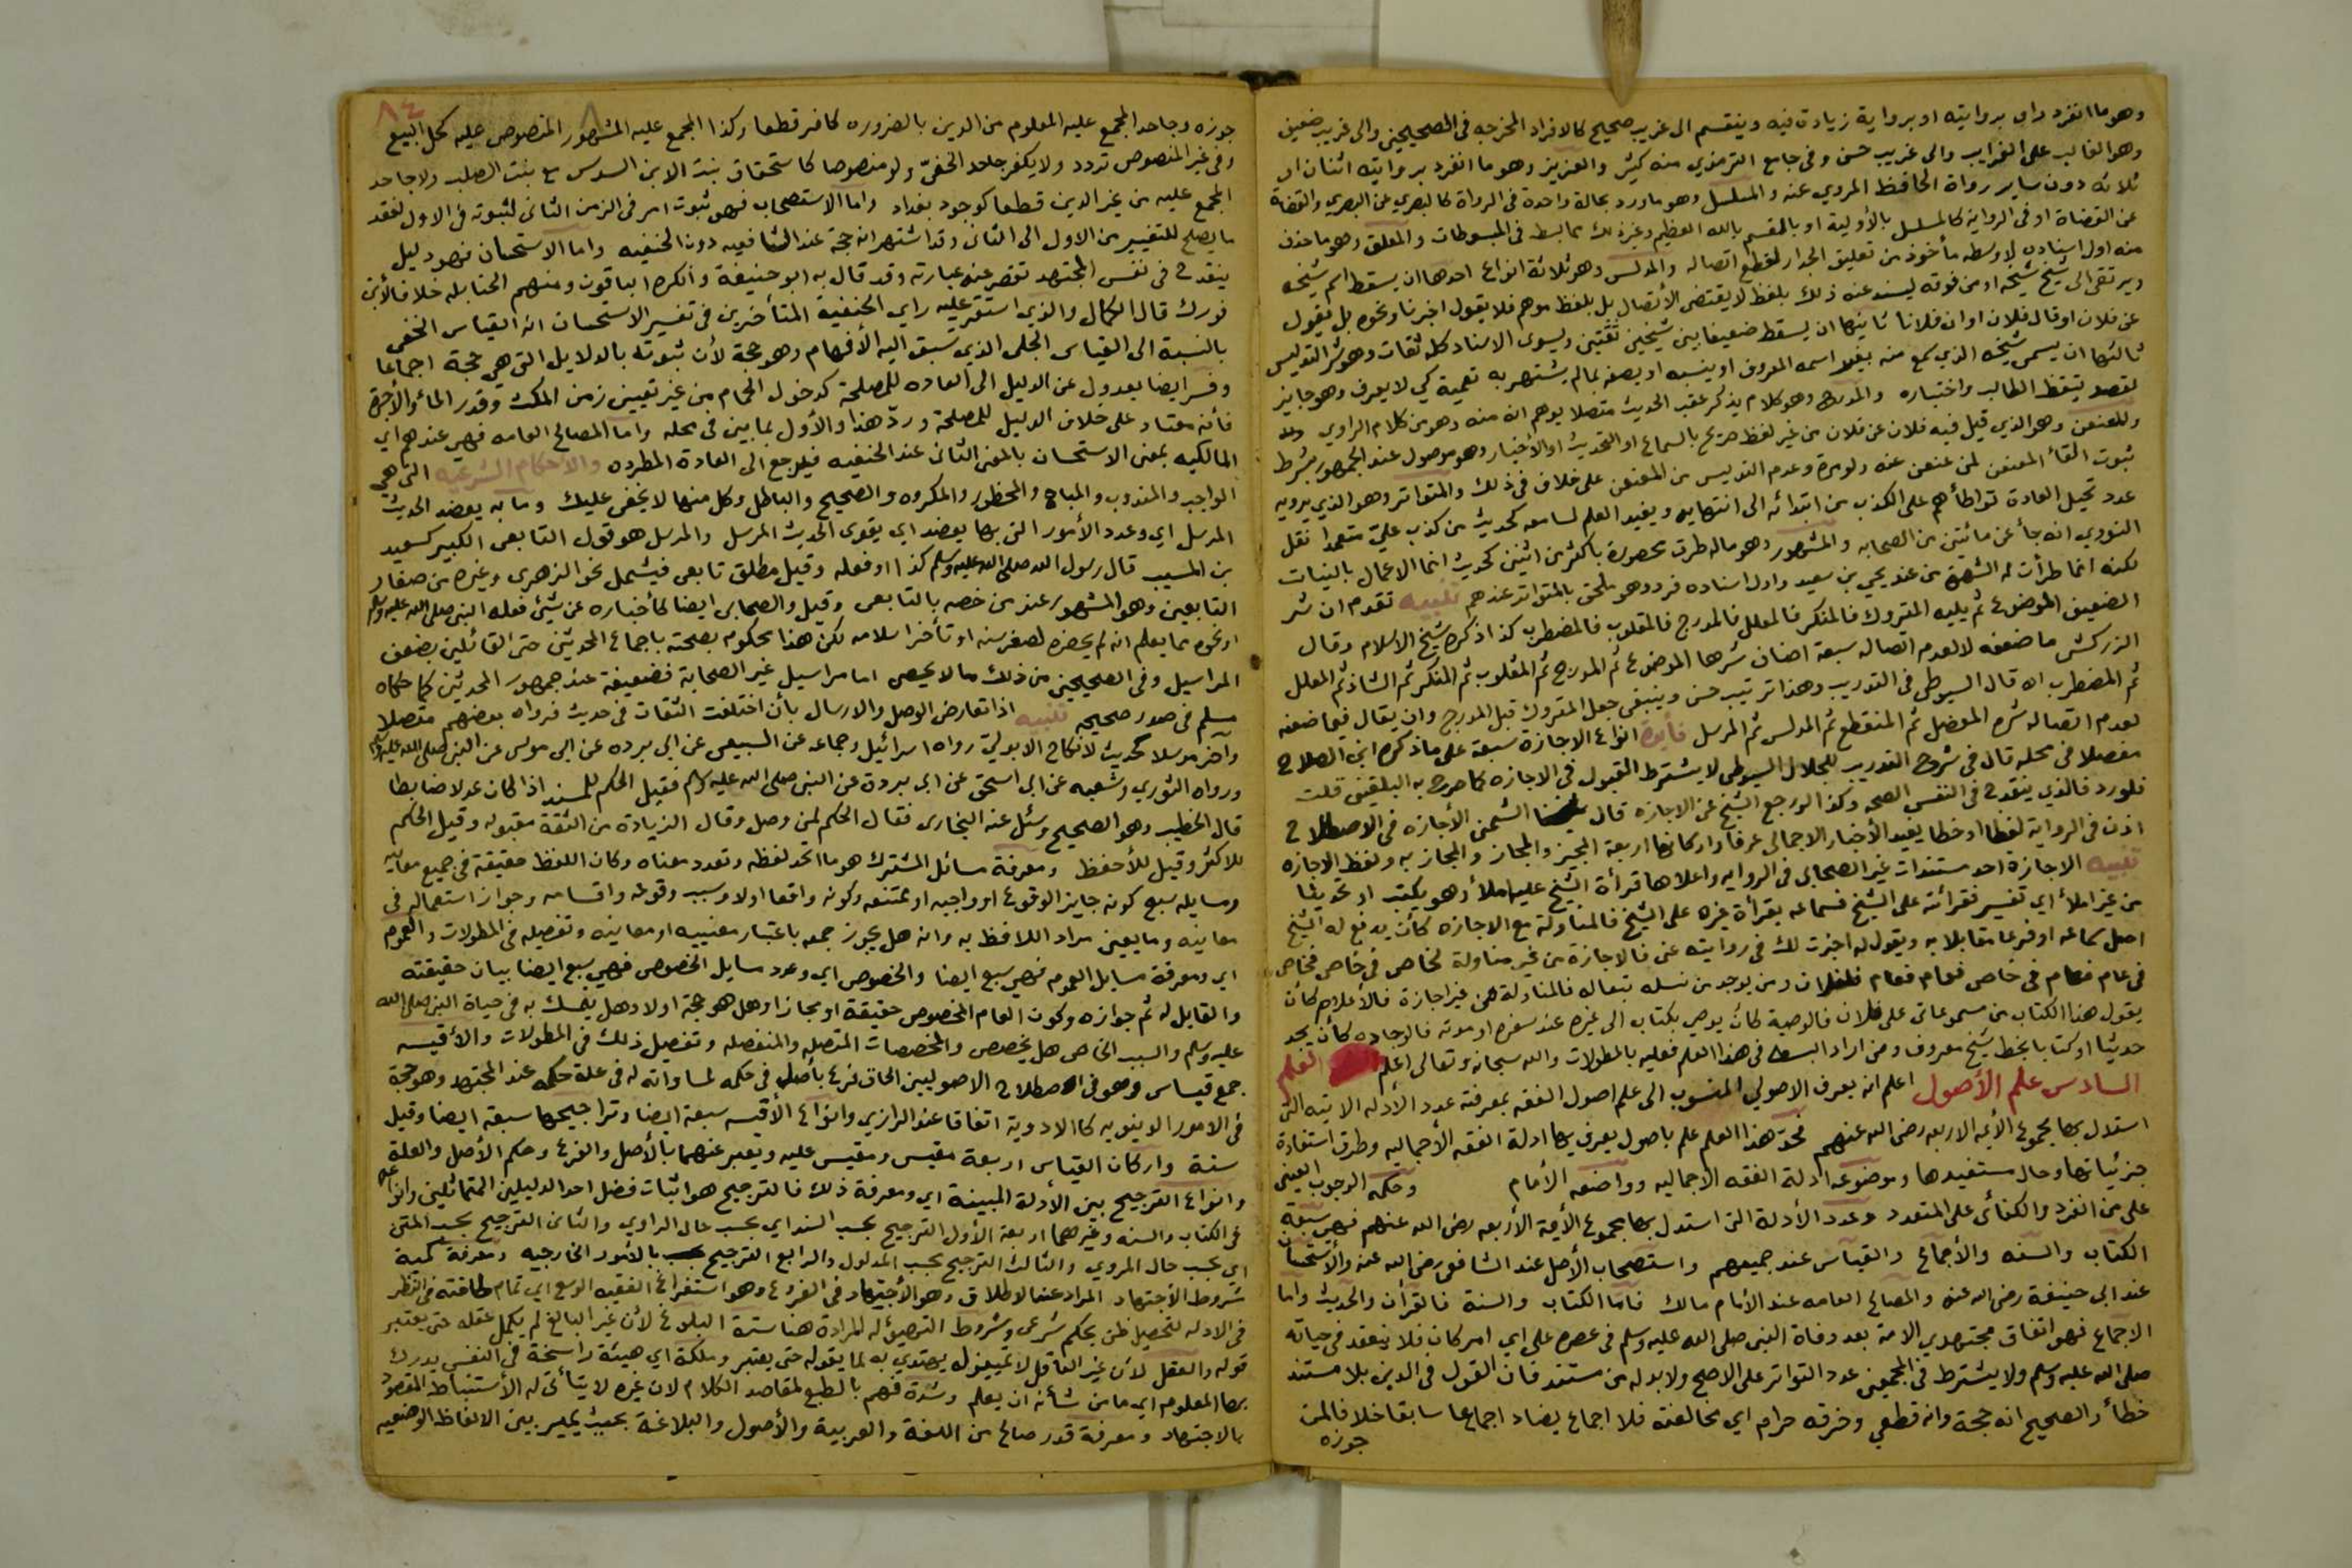 وهو ما انفرد راو بروايته او برواية زيادة فيه وينقسم الى غريب صحيح كالافراد المخرجه فى الصحيحين والى غريب ضعيف
وهو الغالب على الغرايب والى غريب حسن وفى جامع الترمذي منه كثير والعزيز وهو ما انفرد بروايته اثنان او
ثلاثه دون ساير رواة الحافظ المروي عنه والمسلسل وهو ما ورد بحالة واحدة فى الرواة كالبصري عن البصري والقضاة
عن القضاة او فى الرواية كالمسلسل بالأولية او بالقسم بالله العظيم وغير ذلك مما بسط فى المبسوطات والمعلق وهو ما حذف
منه اول اسناده لا وسطه مأخوذ من تعليق الجدار لقطع اتصاله والمدلس وهو ثلاثة انواع احدها ان يسقط اسم شيخه
ويرتقى الى شيخ شيخه او من فوقه ليسند عنه ذلك بلفظ لا يقتضى الاتصال بل بلفظ موهم فلا يقول اخبرنا ونحوه بل يقول
عن فلان او قال فلان او ان فلانا ثانيها ان يسقط ضعيفا بين شيخين ثقتين ويسوى الاسناد كله ثقات وهو شر التدليس
ثالثها ان يسمى شيخه الذي سمع منه بغير اسمه المعروف او ينسبه او يصفه بما لم يشتهر به تعمية كي لا يعرف وهو جايز
لقصد تيقظ الطالب واختباره والمدرج وهو كلام يذكر عقب الحديث متصلا يوهم انه منه وهو من كلام الراوي
والمعنعن وهو الذي قيل فيه فلان عن فلان من غير لفظ صريح بالسماع او التحديث او الأخبار وهو موصول عند الجمهور بشرط
ثبوت القأ المعنعن لمن عنعن عنه ولو مرة وعدم التدليس من المعنعن على خلاف فى ذلك والمتواتر وهو الذي يرويه
عدد تحيل العادة تواطأهم على الكذب من ابتدائه الى انتهايه ويفيد العلم لسامعه كحديث من كذب عليّ متعمدا نقل
النووي انه جأ عن مائتين من الصحابه والمشهور وهو ماله طرق محصورة باكثر من اثنين كحديث انما الاعمال بالنيات
لكنه انما طرأت له الشهرة من عند يحيى بن سعيد واول اسناده فرد وهو ملحق بالمتواتر عندهم تنبيه تقدم ان شر
الضعيف الموضوع ثم يليه المتروك فالمنكر فالمعلل فالمدرج فالمقلوب فالمضطرب كذا ذكره شيخ الاسلام وقال
الزركشى ما ضعفه لا لعدم اتصاله سبعة اصناف شرها الموضوع ثم المدرج ثم المقلوب ثم المنكر ثم الشاذ ثم المعلل
ثم المضطرب اه قال السيوطى فى التدريب وهذا ترتيب حسن وينبغى جعل المتروك قبل المدرج وان يقال فيما ضعفه
لعدم اتصاله شره المعضل ثم المنقطع ثم المدلس ثم المرسل فأيدة انواع الاجازة سبعة على ما ذكره ابن الصلاح
مفصلا فى محله قال فى شرح التدريب للجلال السيوطى لا يشترط القبول فى الاجازه كما صرح به البلقينى قلت
فلو رد فالذي ينقدح فى النفس الصحه وكذا لو رجع الشيخ عن الاجازة قال شيخنا الشمنى الأجازه فى الاصطلاح
اذن فى الرواية لفظا او خطا يفيد الأخبار الاجمالى عرفا واركانها اربعة المجيز والمجاز والمجاز به ولفظ الاجازه
تنبيه الاجازة احد مستندات غير الصحابى فى الروايه واعلاها قرأة الشيخ عليه املأ وهو يكتب او تحديثا
من غير املأ اي تفسير فقرائته على الشيخ فسماعه بقرأة غيره على الشيخ فالمناولة مع الاجازه كأن يدفع له الشيخ
اصل سماعه او فرعا مقابلا به ويقول له اجزت لك فى روايته عنى فالاجازة من غير مناولة لخاص فى خاص فخاص
فى عام فعام فى خاص فعام فعام فلفلان ومن يوجد من نسله تبعا له فالمناولة من غير اجازة فالأعلام كأن
يقول هذا الكتاب من مسموعاتى على فلان فالوصية كأن يوصى بكتاب الى غيره عند سفره او موته فالوجاده كأن يجد
حديثا او كتابا بخط شيخ معروف ومن اراد البسط فى هذا العلم فعليه بالمطولات والله سبحانه وتعالى اعلم العلم
السادس علم الأصول اعلم انه يعرف الاصولي المنسوب الى علم اصول الفقه بمعرفته عدد الأدله الاتيه التى
استدل بها مجموع الأيمه الاربعه رضى الله عنهم فحدّ هذا العلم علم باصول يعرف بها ادلة الفقه الأجماليه وطرق استفادة
جزئياتها وحال مستفيدها وموضوعه ادلة الفقه الاجماليه وواضعه الأمام وحكمه الوجوب العينى
على من انفرد والكفائى على المتعدد وعدد الأدلة التى استدل بها مجموع الأيمة الأربعه رضى الله عنهم فهى سبعة
الكتاب والسنه والأجماع والقياس عند جميعهم واستصحاب الأصل عند الشافعى رضى الله عنه والأستحسان
عند ابى حنيفة رضى الله عنه والمصالح العامه عند الأمام مالك فأما الكتاب والسنة فالقرآن والحديث واما
الاجماع فهو اتفاق مجتهدي الامة بعد وفاة النبى صلى الله عليه وسلم فى عصره على اي امر كان فلا ينعقد فى حياته
صلى الله عليه وسلم ولا يشترط فى المجمعين عدد التواتر على الاصح ولا بد له من مستند فان القول فى الدين بلا مستند
خطأ والصحيح انه حجة وانه قطعي وخرقه حرام اي مخالفته فلا اجماع يضاد اجماعا سابقا خلافا لمن
جوزه
٨٤
جوزه وجاحد المجمع عليه المعلوم من الدين بالضروره كافر قطعا وكذا المجمع عليه المشهور المنصوص عليه كحل البيع
وفى غير المنصوص تردد ولا يكفر جاحد الخفىّ ولو منصوصا كاستحقاق بنت الابن السدس مع بنت الصلب ولا جاحد
المجمع عليه من غير الدين قطعا كوجود بغداد واما الاستصحاب فهو ثبوت امر فى الزمن الثانى لثبوته فى الاول لفقد
ما يصلح للتغيير من الاول الى الثانى وقد اشتهر انه حجة عند الشافعيه دون الحنفيه واما الاستحسان فهو دليل
ينقدح فى نفس المجتهد تقصر عنه عبارته وقد قال به ابو حنيفة وانكره الباقون ومنهم الحنابله خلافا لأبن
فورك قال الكمال والذي استقر عليه راي الحنفية المتأخرين فى تفسير الاستحسان انه القياس الخفى
بالنسبة الى القياس الجلى الذي تسبق اليه الأفهام وهو حجة لأن ثبوته بالدلايل التى هي حجة اجماعا
وفسر ايضا بعدول عن الدليل الى العاده للمصلحة كدخول الحمام من غير تعيين زمن المكث وقدر المأ والأجرة
فأنه معتاد على خلاف الدليل للمصلحة وردّ هذا والأول بما بين فى محله واما المصالح العامه فهي عندهم اي
المالكيه بمعنى الاستحسان بالمعنى الثانى عند الحنفيه فيرجع الى العادة المطرده والاحكام الشرعيه التى هي
الواجب والمندوب والمباح والمحظور والمكروه والصحيح والباطل وكل منها لا يخفى عليك وما به يعضد الحديث
المرسل اي وعدد الأمور التى بها يعضد اي يقوى الحديث المرسل والمرسل هو قول التابعى الكبير كسعيد
بن المسيب قال رسول الله صلى الله عليه وسلم كذا او فعله وقيل مطلق تابعى فيشمل نحو الزهرى وغيره من صغار
التابعين وهو المشهور عند من خصه بالتابعى وقيل والصحابى ايضا كأخباره عن شيئ فعله النبى صلى الله عليه وسلم
او نحوه مما يعلم انه لم يحضره لصغر سنه او تأخر اسلامه لكن هذا محكوم بصحته باجماع المحدثين حتى القائلين بضعف
المراسيل وفى الصحيحين من ذلك ما لا يحصى اما مراسيل غير الصحابة فضعيفة عند جمهور المحدثين كما حكاه
مسلم فى صدر صحيحه تنبيه اذا تعارض الوصل والارسال بأن اختلفت الثقات فى حديث فرواه بعضهم متصلا
وآخر مرسلا كحديث لا نكاح الا بولي رواه اسرائيل وجماعه عن السبيعى عن ابى برده عن ابى موسى عن النبى صلى الله عليه وسلم
ورواه الثوري وشعبه عن ابى اسحق عن ابى بردة عن النبى صلى الله عليه وسلم فقيل الحكم للمسند اذا كان عدلا ضابطا
قال الخطيب وهو الصحيح وسئل عنه البخارى فقال الحكم لمن وصل وقال الزيادة من الثقة مقبوله وقيل الحكم
للاكثر وقيل للأحفظ ومعرفة مسائل المشترك هو ما اتحد لفظه وتعدد معناه وكان اللفظ حقيقة فى جميع معانيه
ومسايله سبع كونه جايز الوقوع او واجبه او ممتنعه وكونه واقعا اولا وسبب وقوعه واقسامه وجواز استعماله فى
معانيه وما يعين مراد اللافظ به وانه هل يجوز جمعه باعتبار معنييه او معانيه وتفصيله فى المطولات والعموم
اي ومعرفة مسايل العموم فهي سبع ايضا والخصوص اي وعدد مسايل الخصوص فهي سبع ايضا بيان حقيقته
والقابل له ثم جوازه وكون العام المخصوص حقيقة او مجازا وهل هو حجة اولا وهل يتمسك به فى حياة النبى صلى الله
عليه وسلم والسبب الخاص هل يخصص والمخصصات المتصله والمنفصله وتفصيل ذلك فى المطولات والأقيسه
جمع قياس وهو فى الاصطلاح الاصوليين الحاق فرع بأصل فى حكمه لمساواته له فى علة حكمه عند المجتهد وهو حجة
فى الامور الدنيويه كالادوية اتفاقا عند الرازي وانواع الأقيسه سبعة ايضا وتراجيحها سبعة ايضا وقيل
ستة واركان القياس اربعة مقيس ومقيس عليه ويعبر عنهما بالأصل والفرع وحكم الأصل والعلة
وانواع الترجيح بين الأدلة المبينة اي ومعرفة ذلك فالترجيح هو اثبات فضل احد الدليلين المتماثلين وانواعه
فى الكتاب والسنه وغيرهما اربعة الأول الترجيح بحسب السند اي بحسب حال الراوي والثانى الترجيح بحسب المتن
اي بحسب حال المروي والثالث الترجيح بحسب المدلول والرابع الترجيح بحسب بالأمور الخارجيه ومعرفة كمية
شروط الأجتهاد المراد عند الاطلاق وهو الأجتهاد فى الفروع وهو استفراغ الفقيه الوسع اي تمام طاقته فى النظر
فى الادله لتحصيل ظن بحكم شرعى وشروط التهيؤ له المرادة هنا ستة البلوغ لأن غير البالغ لم يكمل عقله حتى يعتبر
قوله والعقل لأن غير العاقل لا تمييز له يهتدي به لما يقوله حتى يعتبر وملكة اي هيئة راسخة فى النفس يدرك
بها المعلوم اي ما من شأنه ان يعلم وشدة فهم بالطبع لمقاصد الكلام لان غيره لا يتأتى له الأستنباط المقصود
بالاجتهاد ومعرفة قدر صالح من اللغة والعربية والأصول والبلاغة بحيث يميز بين الالفاظ الوضعيه